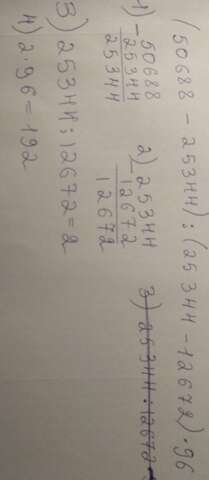 (50688 - 25344) : (25344 - 12672) · 96
1) - 50688
25344
25344
2) - 25344
12672
12672
3) 25344 : 12672
3) 25344 : 12672 = 2
4) 2 · 96 = 192